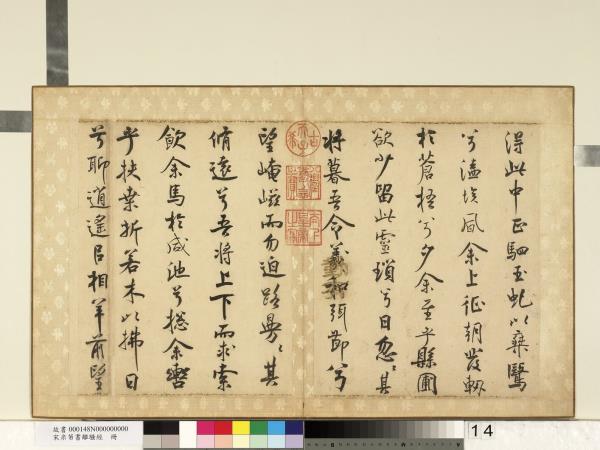 得此中正駟玉虬以乘鷖
兮溘埃風余上征朝發軔
於蒼梧兮夕余至乎縣圃
欲少留此靈瑣兮日忽〻其
將暮吾令羲和弭節兮
望崦嵫而勿迫路曼〻其
脩遠兮吾將上下而求索
飲余馬於咸池兮摠余轡
乎扶桒折若木以拂日
兮聊逍遙以相羊前望
故書 000148N000000000
宋米芾書離騷經 冊
14